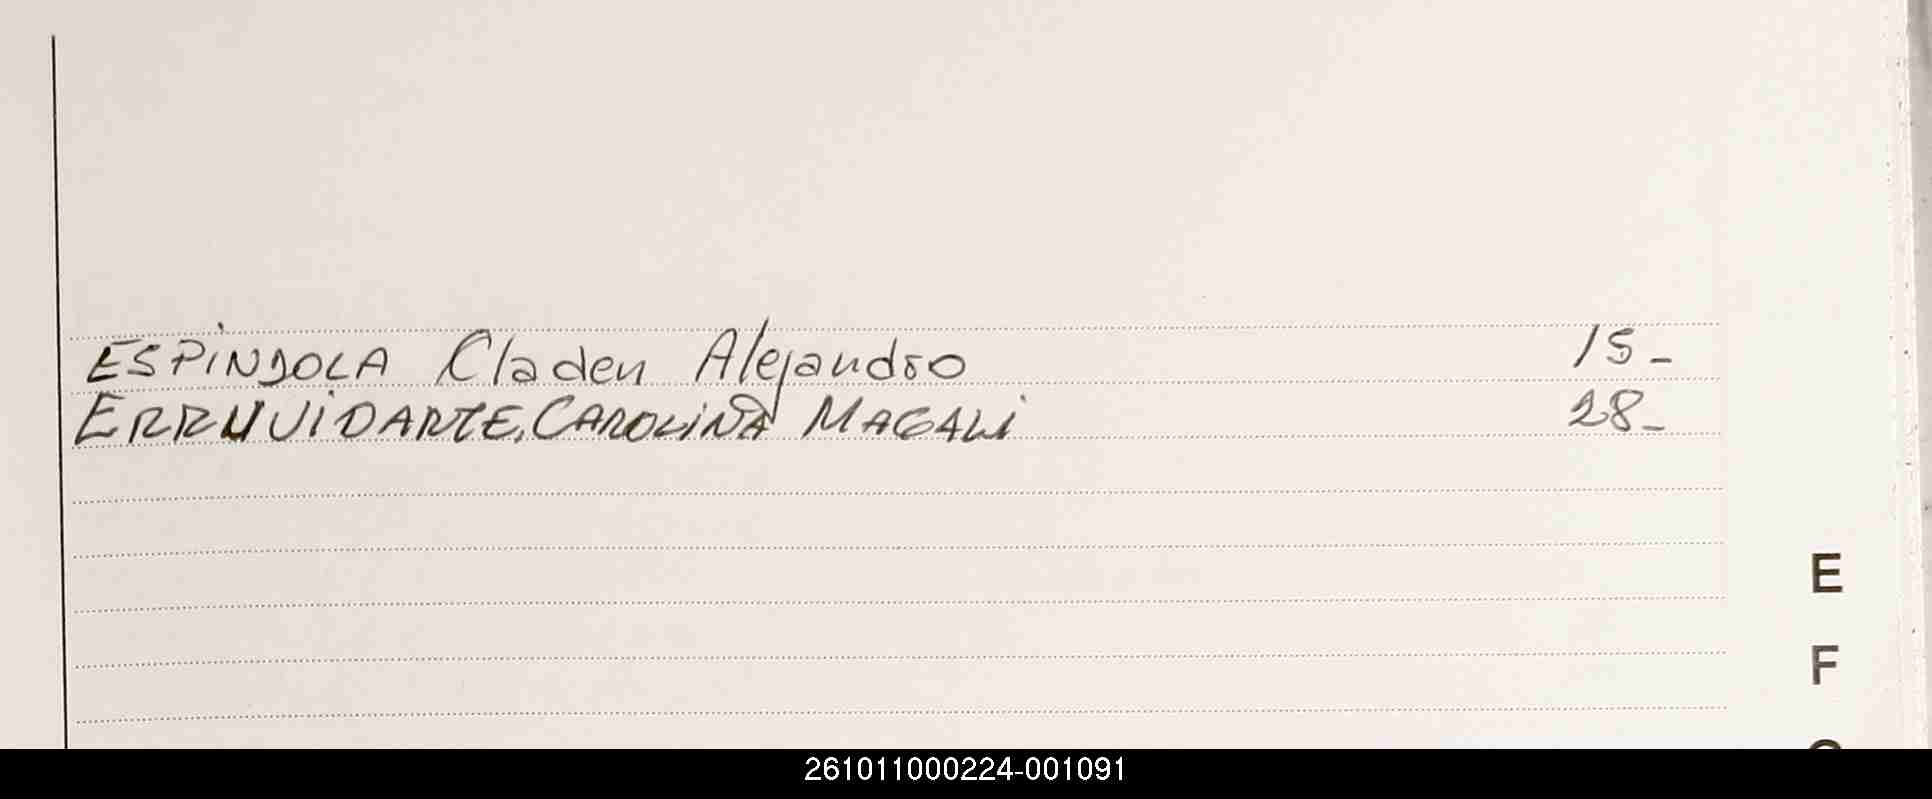 ESPINDOLA Claden Alejandro 15-
ERRUVIDARTE, CAROLINA MAGALI 28-
E
F
261011000224-001091